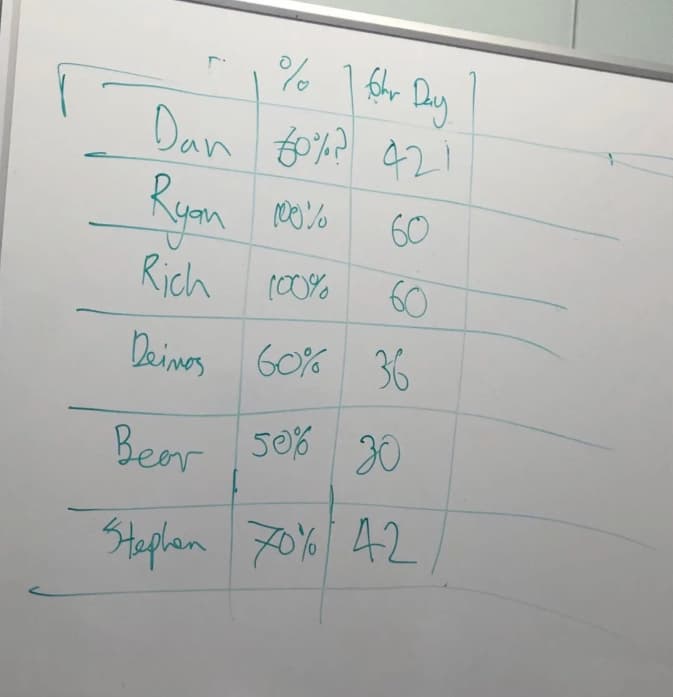 % 6hr Day
Dan 42
Ryan 100% 60
Rich 100% 60
Deimos 60% 36
Bear 50% 30
Stephen 70% 42